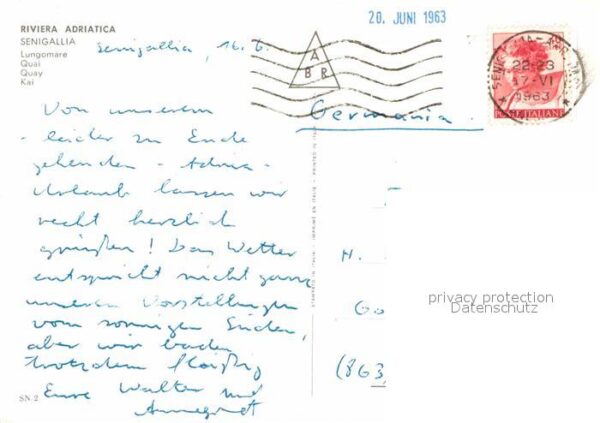 RIVIERA ADRIATICA
SENIGALLIA
Lungomare
Quai
Quay
Kai
20. JUNI 1963
Senigallia, 16.6.
A
B R
22-23
17-VI
1963
POSTE ITALIANE
Germania
Von unserem
- leider zu Ende
gehenden - Adria-
Urlaub lassen wir
recht herzlich
grüßen! Das Wetter
entspricht nicht ganz
unseren Vorstellungen
vom sonnigen Süden,
aber wir baden
trotzdem fleißig
Eure Walter und
Annegret
H.
Go
(863
privacy protection
Datenschutz
PRINTED IN ITALY
SN. 2